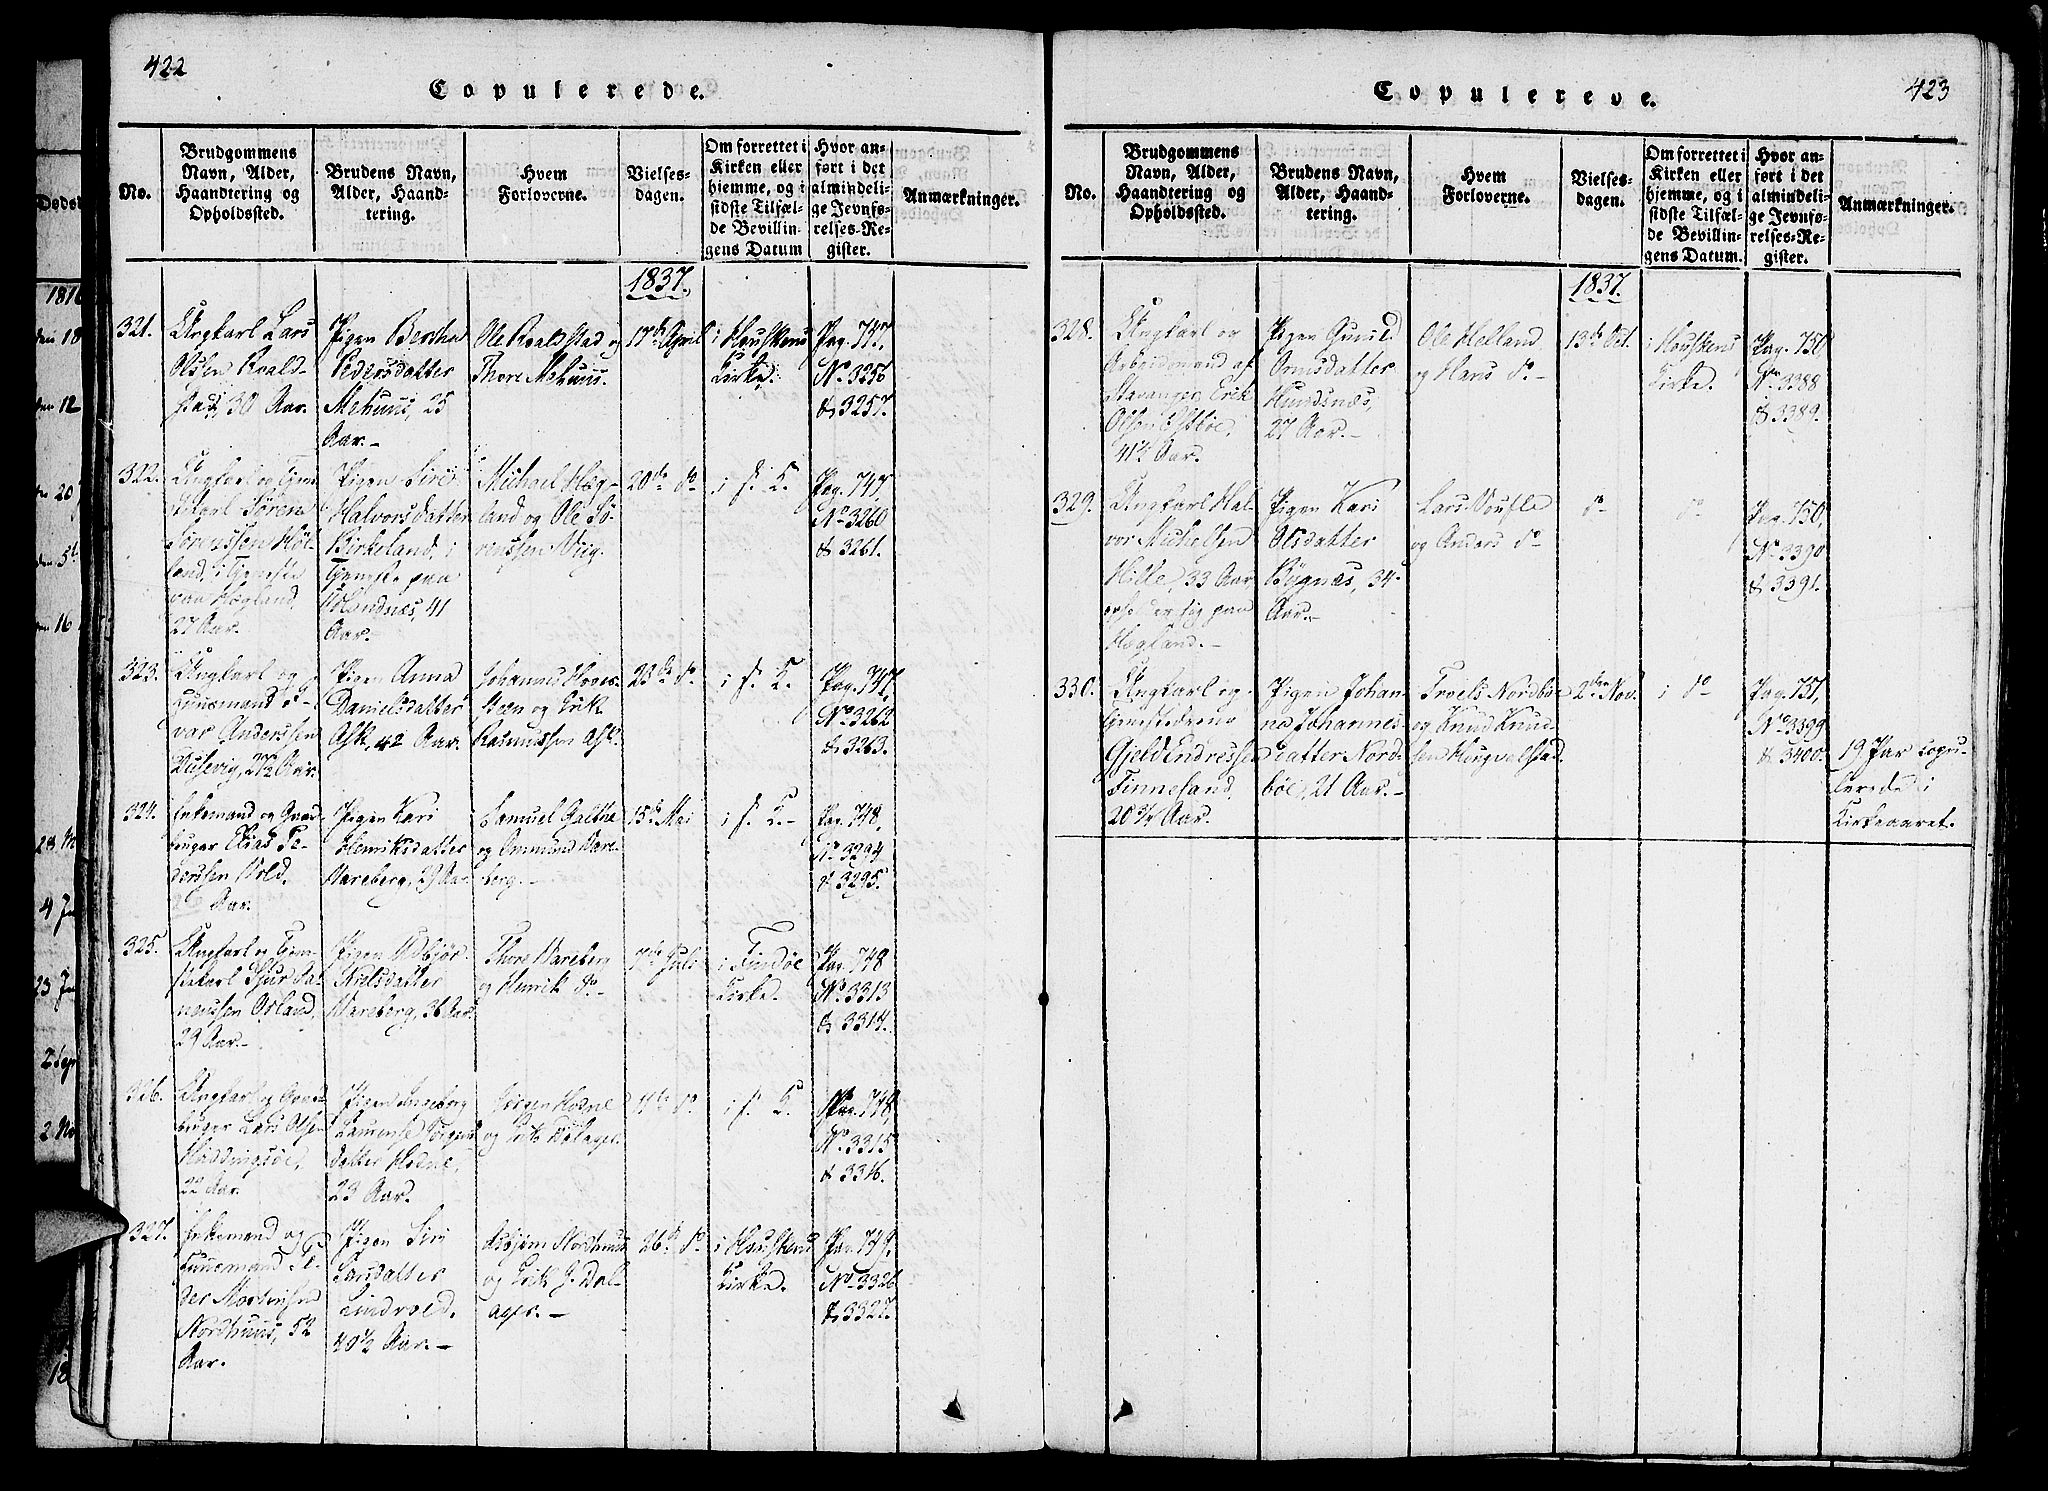 422
Copulerede.
No.
Brudgommens
Navn, Alder,
Haandtering og
Opholdssted.
Brudens Navn,
Alder, Haand-
tering.
Hvem
Forloverne.
Vielses-
dagen.
Om forrettet i
Kirken eller
hjemme, og i
sidste Tilfæl-
de Bevillin-
gens Datum
Hvor an-
ført i det
almindeli-
ge Jevnfø-
relses-Re-
gister.
Anmærkninger.
1837.
321.
Ungkarl Lars
Olsen Roald-
stad, 30 Aar.
Pigen Bertha
Pedersdatter
Mehuus, 25
Aar.-
Ole Roaldstad og
Thore Mehuus.
17de April
i Houskens
Kirke.
Pag. 747.
No 3256
& 3257.
322.
Ungkarl og Tjene-
stekarl Sören
Sörenssen
land, i Tjeneste
paa Hegland,
27 Aar.
Pigen Siri
Halvorsdatter
Birkeland, i
Tjeneste paa
41
Aar.-
Michael Heg-
land og Ole Sö-
renssen Viig.
20de do
i s. K.
Pag. 747,
No 3260
& 3261.
323.
Ungkarl og
Huusmand
var Anderssen
27½ Aar.
Pigen Anna
Danielsdatter
Ask, 42 Aar.
Johannes
steen og Erik
Rasmussen Ask.
23de do
i s. K.
Pag. 747,
No 3262
& 3263.
324.
Enkemand og Gaard-
bruger Elias Pe-
derssen Vold,
Aar.
Pigen Kari
Henriksdatter
Vareberg, 29 Aar
Samuel Galthe
og Omund Vare-
berg.-
15de Mai
i s. K.-
Pag. 748,
No 3294
& 3295.
325.
Ungkarl og Tjene-
stekarl Sjur Da-
nelssen Orland,
29 Aar.-
Pigen Asbjör
Nielsdatter
Vareberg, 36 Aar.
Thore Vareberg
og Henrik do-
7de Juli
i Findöe
Kirke.
Pag. 748
No 3313
& 3314.
326.
Ungkarl og Gaard-
bruger Lars Olsen
Haddingsöe,
22 Aar.
Pigen Ingeborg
Laurense Jörgens-
datter Hodne,
23 Aar.
Jörgen Hodne
og Erik Dalager.
11te do
i s. K.
Pag. 748,
No 3315
& 3316.
327.
Enkemand og
Huusmand Pe-
der Mortensen
Nordhuus, 52
Aar.
Pigen Siri
Larsdatter
Lindvold,
40½ Aar.-
Asbjörn Nordhuus
og Erik J. Dal-
ager.-
26de do
i Houskens
Kirke.
Pag. 749.
No 3326
& 3327.
423
Copulerede.
No.
Brudgommens
Navn, Alder,
Haandtering og
Opholdssted.
Brudens Navn,
Alder, Haand-
tering.
Hvem
Forloverne.
Vielses-
dagen.
Om forrettet i
Kirken eller
hjemme, og i
sidste Tilfæl-
de Bevillin-
gens Datum.
Hvor an-
ført i det
almindeli-
ge Jevnfø-
relses-Re-
gister.
Anmærkninger.
1837.
328.
Ungkarl og
Arbeidsmand af
Stavanger, Erik
Olsen Östböe,
41½ Aar.
Pigen Gunild
Ormsdatter
Hundsnæs,
27 Aar.-
Ole Helland
og Hans do-
13de Oct.
i Houskens
Kirke.
Pag. 750
No 3388
& 3389.
329.
Ungkarl Hal-
vor Michelsen
Hille, 33 Aar
opholder sig paa
Hegland.-
Pigen Kari
Olsdatter
Bygnes, 34
Aar.-
Lars Voufle
og Anders do
do
do
Pag. 750,
No 3390
& 3391.
330.
Ungkarl og
Tjenestedreng
Gjeld Endressen
Finneland,
20¾ Aar.
Pigen Johan-
na Johannes-
datter Nord-
böe, 21 Aar.-
Troels Nordböe
og Knud Knud-
sen Hungvalstad.
2den Nov.
i do
Pag. 751,
No 3399
& 3400.
19 Par copu-
lerede i
Kirkeaaret.